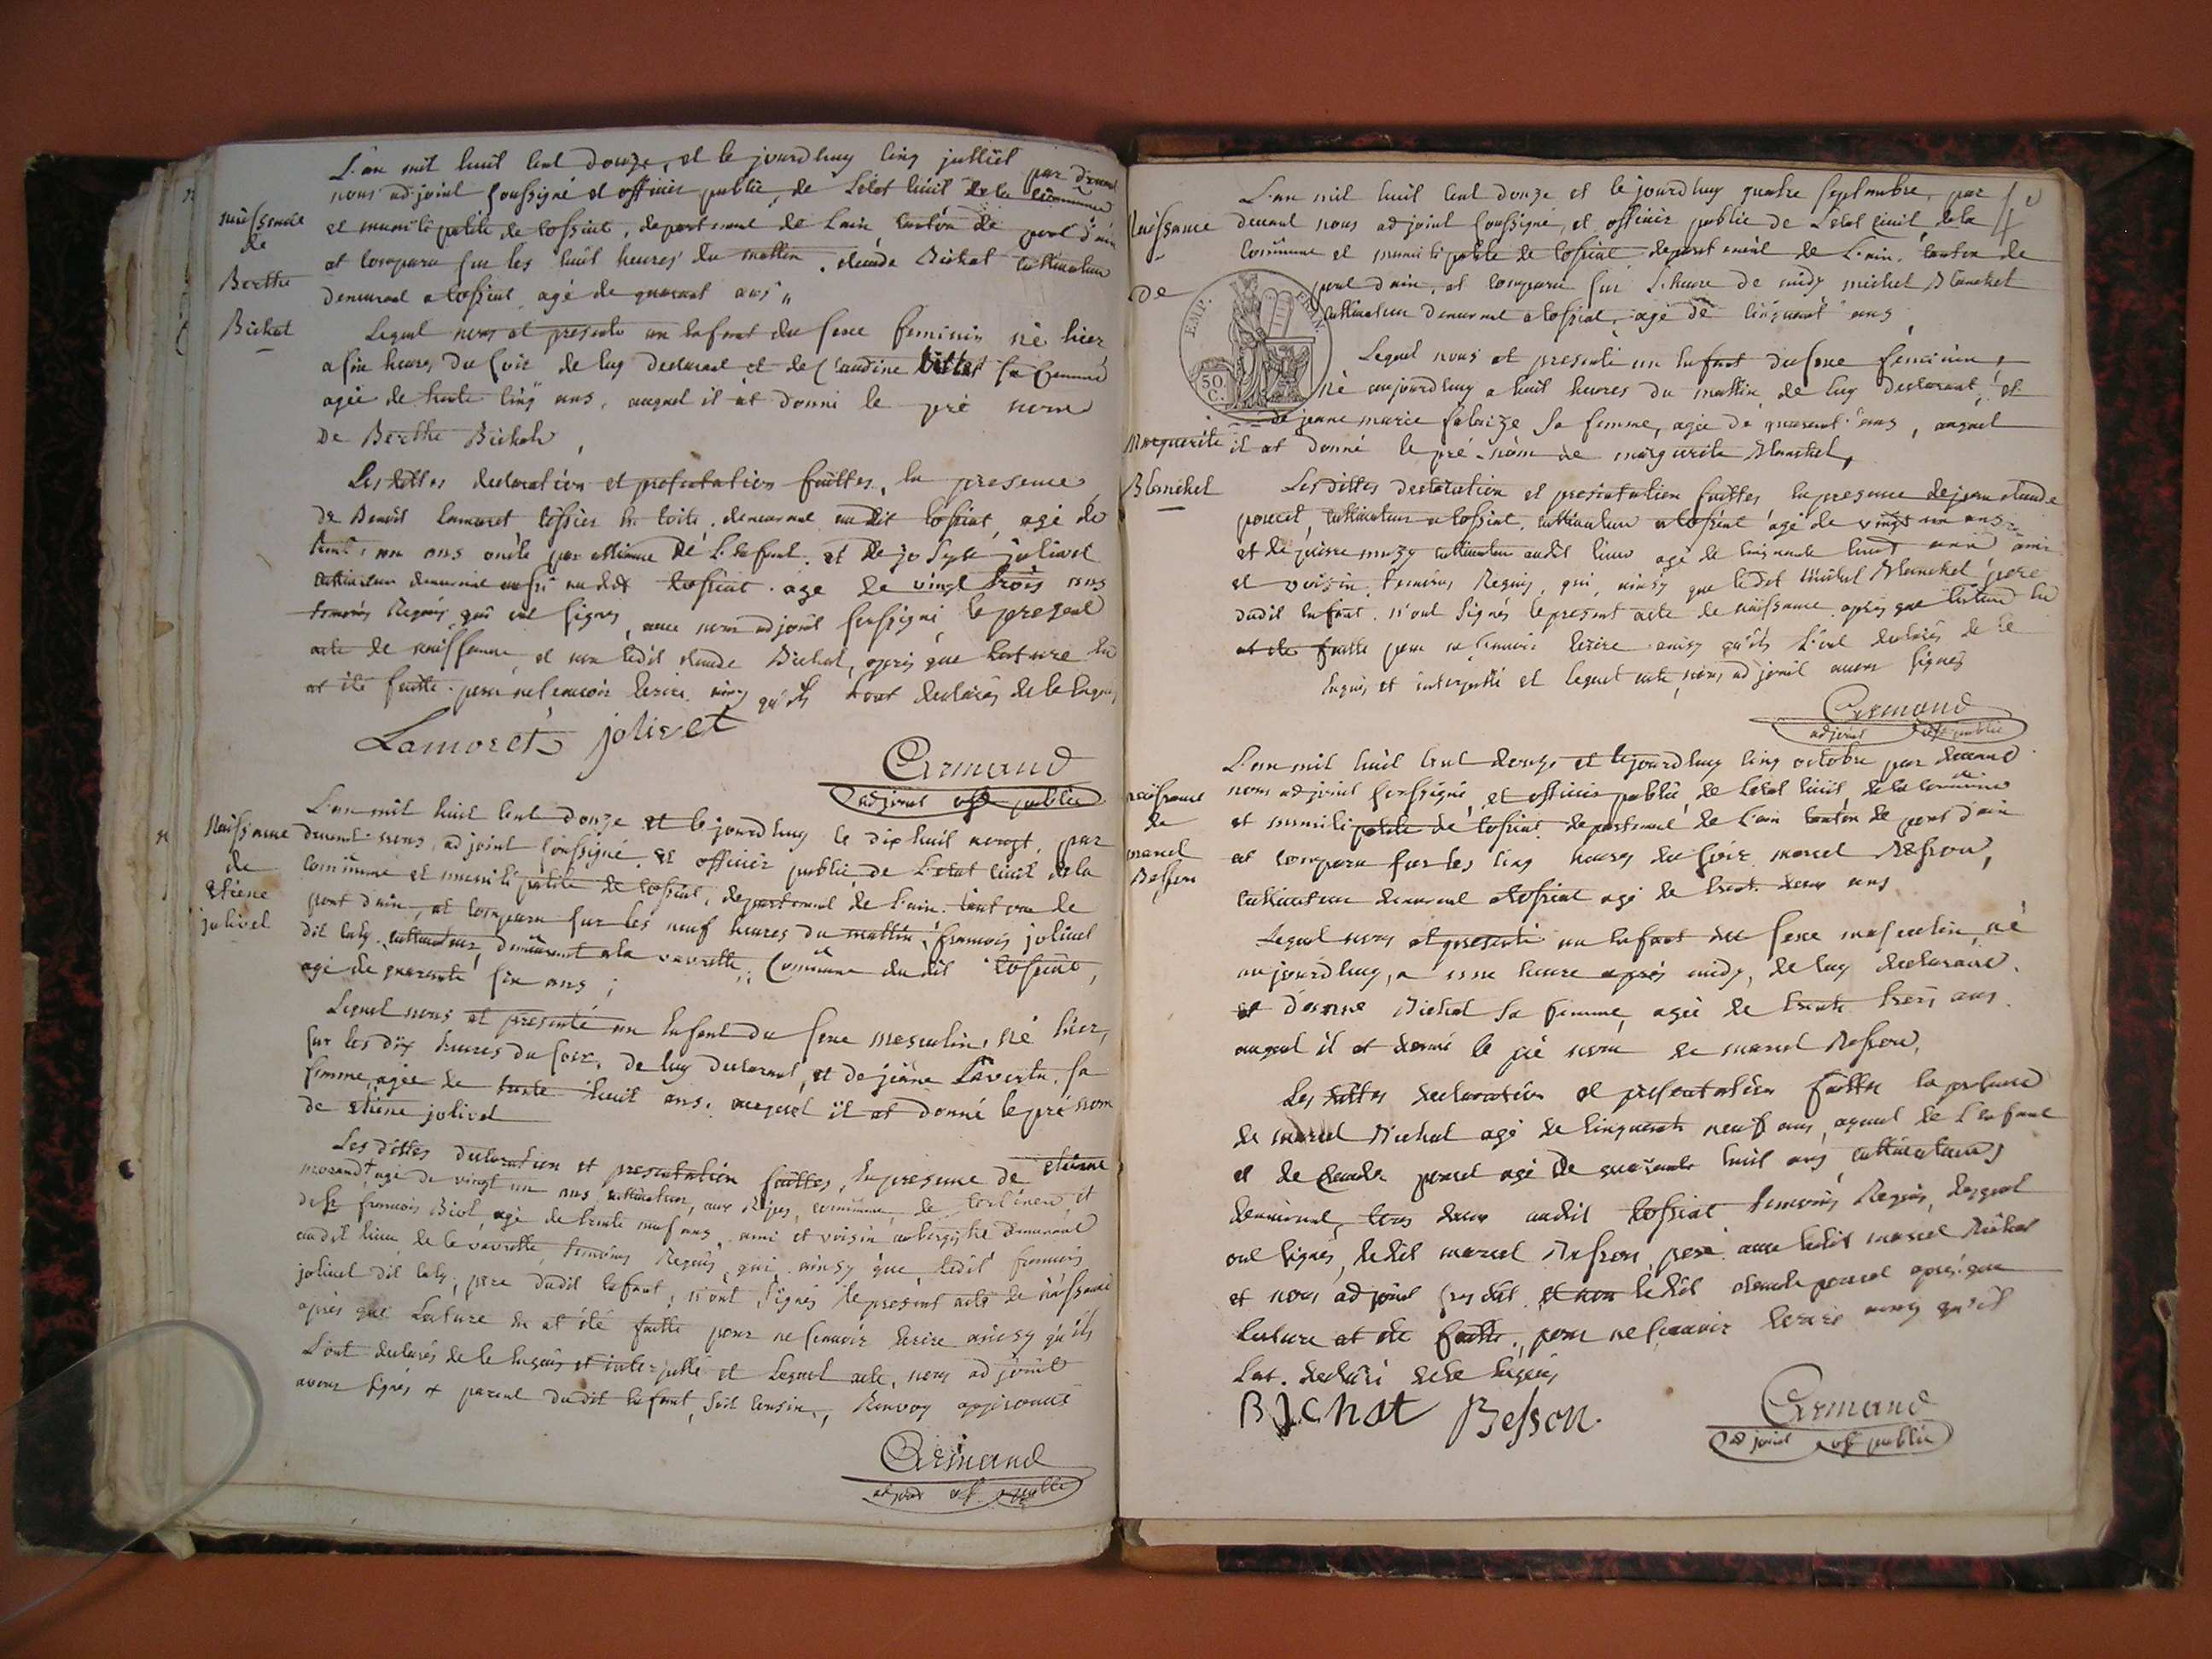 L'an mil huit cent douze, et le jourdhuy cinq julliet
par devant
nous adjoint soussigné et officier public, de L'état civil de la commune
et municipalité de tossiat, departement de Lain canton de pont d'ain
at comparu sur les huit heures du mattin, claude Bichat cultivateur
demeurant a tossiat agé de quarant ans,,
naissance
de
Berthe
Bichat
Lequel nous at presenté un enfant du sexe feminin né hier
a six heures du soir de luy declarant et de Claudine sa femme
agée de trente cinq ans, auquel il at donné le pré nom
De Berthe Bichat,
Les dittes declaration et presentation faittes, en presence
de Benoit Lamoret tissier en toile, demeurant audit tossiat, agé de
trent un ans oncle par alliance de L'enfant, et de joseph jolivet
cultivateur demeurant aussi audit tossiat agé de vingt trois ans
temoins Requis qui ont signés, avec nous adjoint soussigné le present
acte de naissance, et non ledit claude Bichat, après que lecture en
at été faitte pour ne scavoir ecrire ainsy qu'ils l'ont declarés de le enquis,
Lamoret jolivet
Armand
adjoint off public
Naissance
de
Etiene
jolivet
L'an mil huit cent douze et le jourdhuy le dix huit aougt, par
devant nous, adjoint soussigné, et officier public, de L'etat civil de la
commune et municipalité de tossiat, departement de L'ain canton de
pont dain, at comparu sur les neuf heures du mattin, francois jolivet
dit laly cultivateur, demeurant a la vavrette, Commune dudit tossiat,
agé de quarante six ans;
Lequel nous at presenté un enfant du sexe masculin, né hier,
sur les dix heures du soir, de luy declarant, et de jeane Laverta sa
femme, agée de trente huit ans, auquel il at donné le pré nom
de etiene jolivet
Les dittes declaration et presentation faittes, en presence de etienne
morand + agé de vingt un ans cultivateur, aux Ripes, commune, de
de francois Biol, agé de trente neuf ans, ami et voisin aubergiste demeurant
audit lieu de la vavrette, temoins Requis, qui ainsy que, ledit francois
jolivet dit laly, pere dudit enfant, n'ont signés le present acte de naissance
après que Lecture en at été faitte pour ne scavoir ecrire ainsy qu'ils
L'ont declarés de le enquis et interpellé et Lequel acte, nous adjoint
avons signés + parent dudit enfant, soit cousin,, Renvoy approuvé
Armand
adjoint off public
4e
Naissance
De
Marguerite
Blanchet
EMP. FRAN.
50
C.
L'an mil huit cent douze et le jourdhuy quatre septembre, par
devant nous adjoint soussigné, et officier public de L'etat civil de la
commune et municipalité de tossiat departement de L'ain, canton de
pont d'ain, at comparu sur L'heure de midy michel Blanchet
cultivateur demeurant a tossiat, agé de cinquant ans,
Lequel nous at presenté un enfant du sexe feminin,
né aujourdhuy a huit heures du mattin de luy declarant, et
de jeane marie falaize sa femme, agée de quarent ans, auquel
il at donné le pré-nom de marguerite Blanchet,
Les dittes declaration et presentation faittes en presence de jean claude
poncet, cultivateur a tossiat, cultivateur a tossiat agé de vingt un ans
et de pierre mozy cultivateur audit lieu agé de cinquante huit ans ami
et voisin, temoins Requis, qui, ainsy que ledit michel Blanchet pere
dudit enfant, n'ont signés le present acte de naissance après que lecture en
at été faitte pour ne scavoir ecrire ainsy qu'ils L'ont declarés de le
enquis et interpellé et lequel acte, nous adjoint avons signés
Armand
adjoint off public
naissance
de
marcel
Besson
L'an mil huit cent douze et le jourdhuy cinq octobre par devant
nous adjoint soussigné, et officier public, de L'etat civil de la commune
et municipalité de tossiat departement de L'ain canton de pont d'ain
at comparu sur les cinq heures du soir marcel Besson,
cultivateur demeurant a tossiat agé de trent deux ans
Lequel nous at presenté un enfant du sexe masculin, né
aujourdhuy, a une heure après midy, de luy declarant,
et d'anne Bichat sa femme, agée de trente trois ans
auquel il at donné le pré nom de marcel Besson,
Les dittes declaration et presentation faittes en presence
de marcel Bichat agé de cinquante neuf ans, ayeul de L'enfant
et de claude poncet agé de quarante huit ans, cultivateurs,
demeurant, tous deux audit tossiat temoins Requis, lesquel
ont signés, ledit marcel Besson, peré avec ledit marcel Bichat
et nous adjoint susdit et non ledit claude poncet après que
lecture at été faitte, pour ne scavoir ecrire ainsy qu'il
L'at declaré de le enquis
BIchat Besson
Armand
adjoint off public